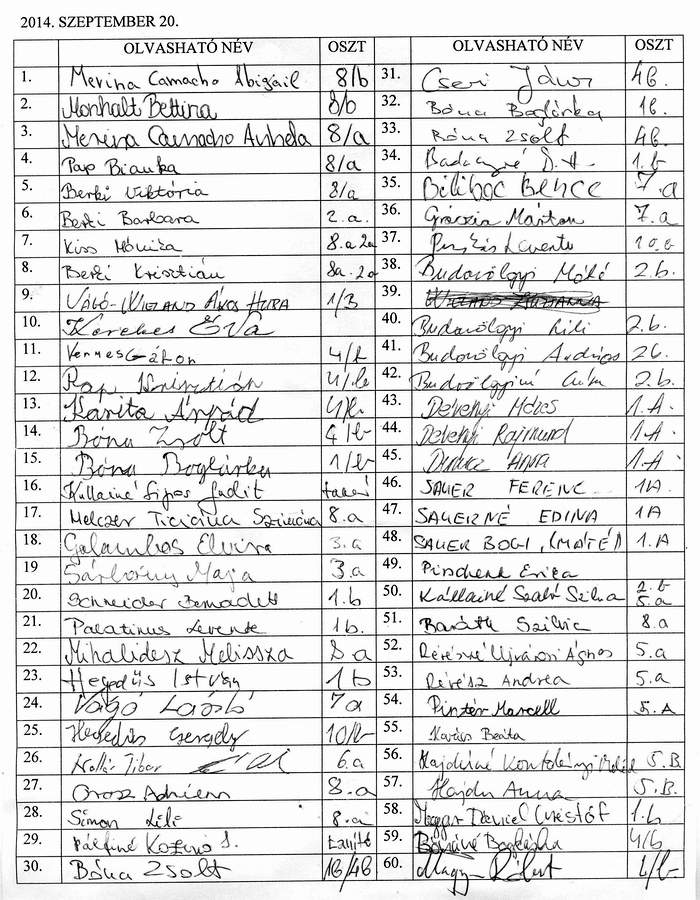 2014. SZEPTEMBER 20.
OLVASHATÓ NÉV OSZT OLVASHATÓ NÉV OSZT
1. Merina Camacho Abigáil 8/b
2. Monhalt Bettina 8/b
3. Merina Camacho Anhela 8/a
4. Pap Bianka 8/a
5. Berki Viktória 8/a
6. Berki Barbara 2.a.
7. Kiss Mónika 8.a 2a
8. Berki Krisztián 8a. 2a
9. VÁGÓ-WIELAND ÁKOS HUBA 1/B
10. Kerekes Éva
11. Vermes Gáton 4/b
12. Pap Krisztián 4/b
13. Karita Árpád 4/b
14. Bóna Zsolt 4/b
15. Bóna Boglárka 1/b
16. Kállainé Sipos Judit tanár
17. Melczer Ticiána Szimóna 8.a
18. Galambos Elvira 3.a
19 Sárközy Maja 3.a
20. Schneider Bernadett 1.b
21. Palatinus Levente 1b.
22. Mihalidesz Melissza 8 a
23. Hegedűs István 1b
24. Vágó László 7a
25. Hegedűs Gergely 10/b
26. Kollár Tibor 6.a
27. Orosz Adrienn 8.a
28. Simon Lili 8.a
29. Pálfiné J. tanító
30. Bóna Zsolt 1b/4b
31. Cseri 4b.
32. Bóna Boglárka 1b.
33. Bóna Zsolt 4b.
34. 1.b
35. Biliboc Bence 7.a
36. Gráczia Márton 7.a
37. Puskás Levente 10.b
38. Budavölgyi Máté 2.b.
39.
40. Budavölgyi Lili 2.b.
41. Budavölgyi András 2b.
42. Budavölgyiné 2.b.
43. Devenyi 1.A.
44. Devenyi Rajmund 1.A
45. Anna 1.A
46. SAUER FERENC 1A
47. SAUERNÉ EDINA 1A
48. SAUER BOGI, (MÁTÉ) 1.A
49. Pirschenk Erika
50. Kállainé Szabó Szilvia 2.b 5.a
51. Baráth Szilvia 8.a
52. Révészné Ujvárosi Ágnes 5.a
53. Révész Andrea 5.a
54. Pintér Marcell 5.A
55. Beáta
56. Hajduné 5.B
57. Hajdu Anna 5.B.
58. Dániel Kristóf 1.b
59. Boglárka 4/b
60. Magyar Róbert 4/b